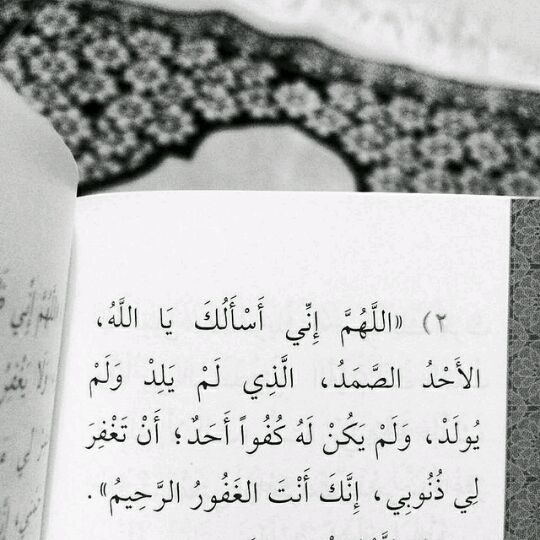 ٢) «اللَّهُمَّ إِنِّي أَسْأَلُكَ يَا اللَّهُ،
الأَحْدُ الصَّمَدُ، الَّذِي لَمْ يَلِدْ وَلَمْ
يُولَدْ، وَلَمْ يَكُنْ لَهُ كُفُواً أَحَدٌ؛ أَنْ تَغْفِرَ
لِي ذُنُوبِي، إِنَّكَ أَنْتَ الغَفُورُ الرَّحِيمُ».